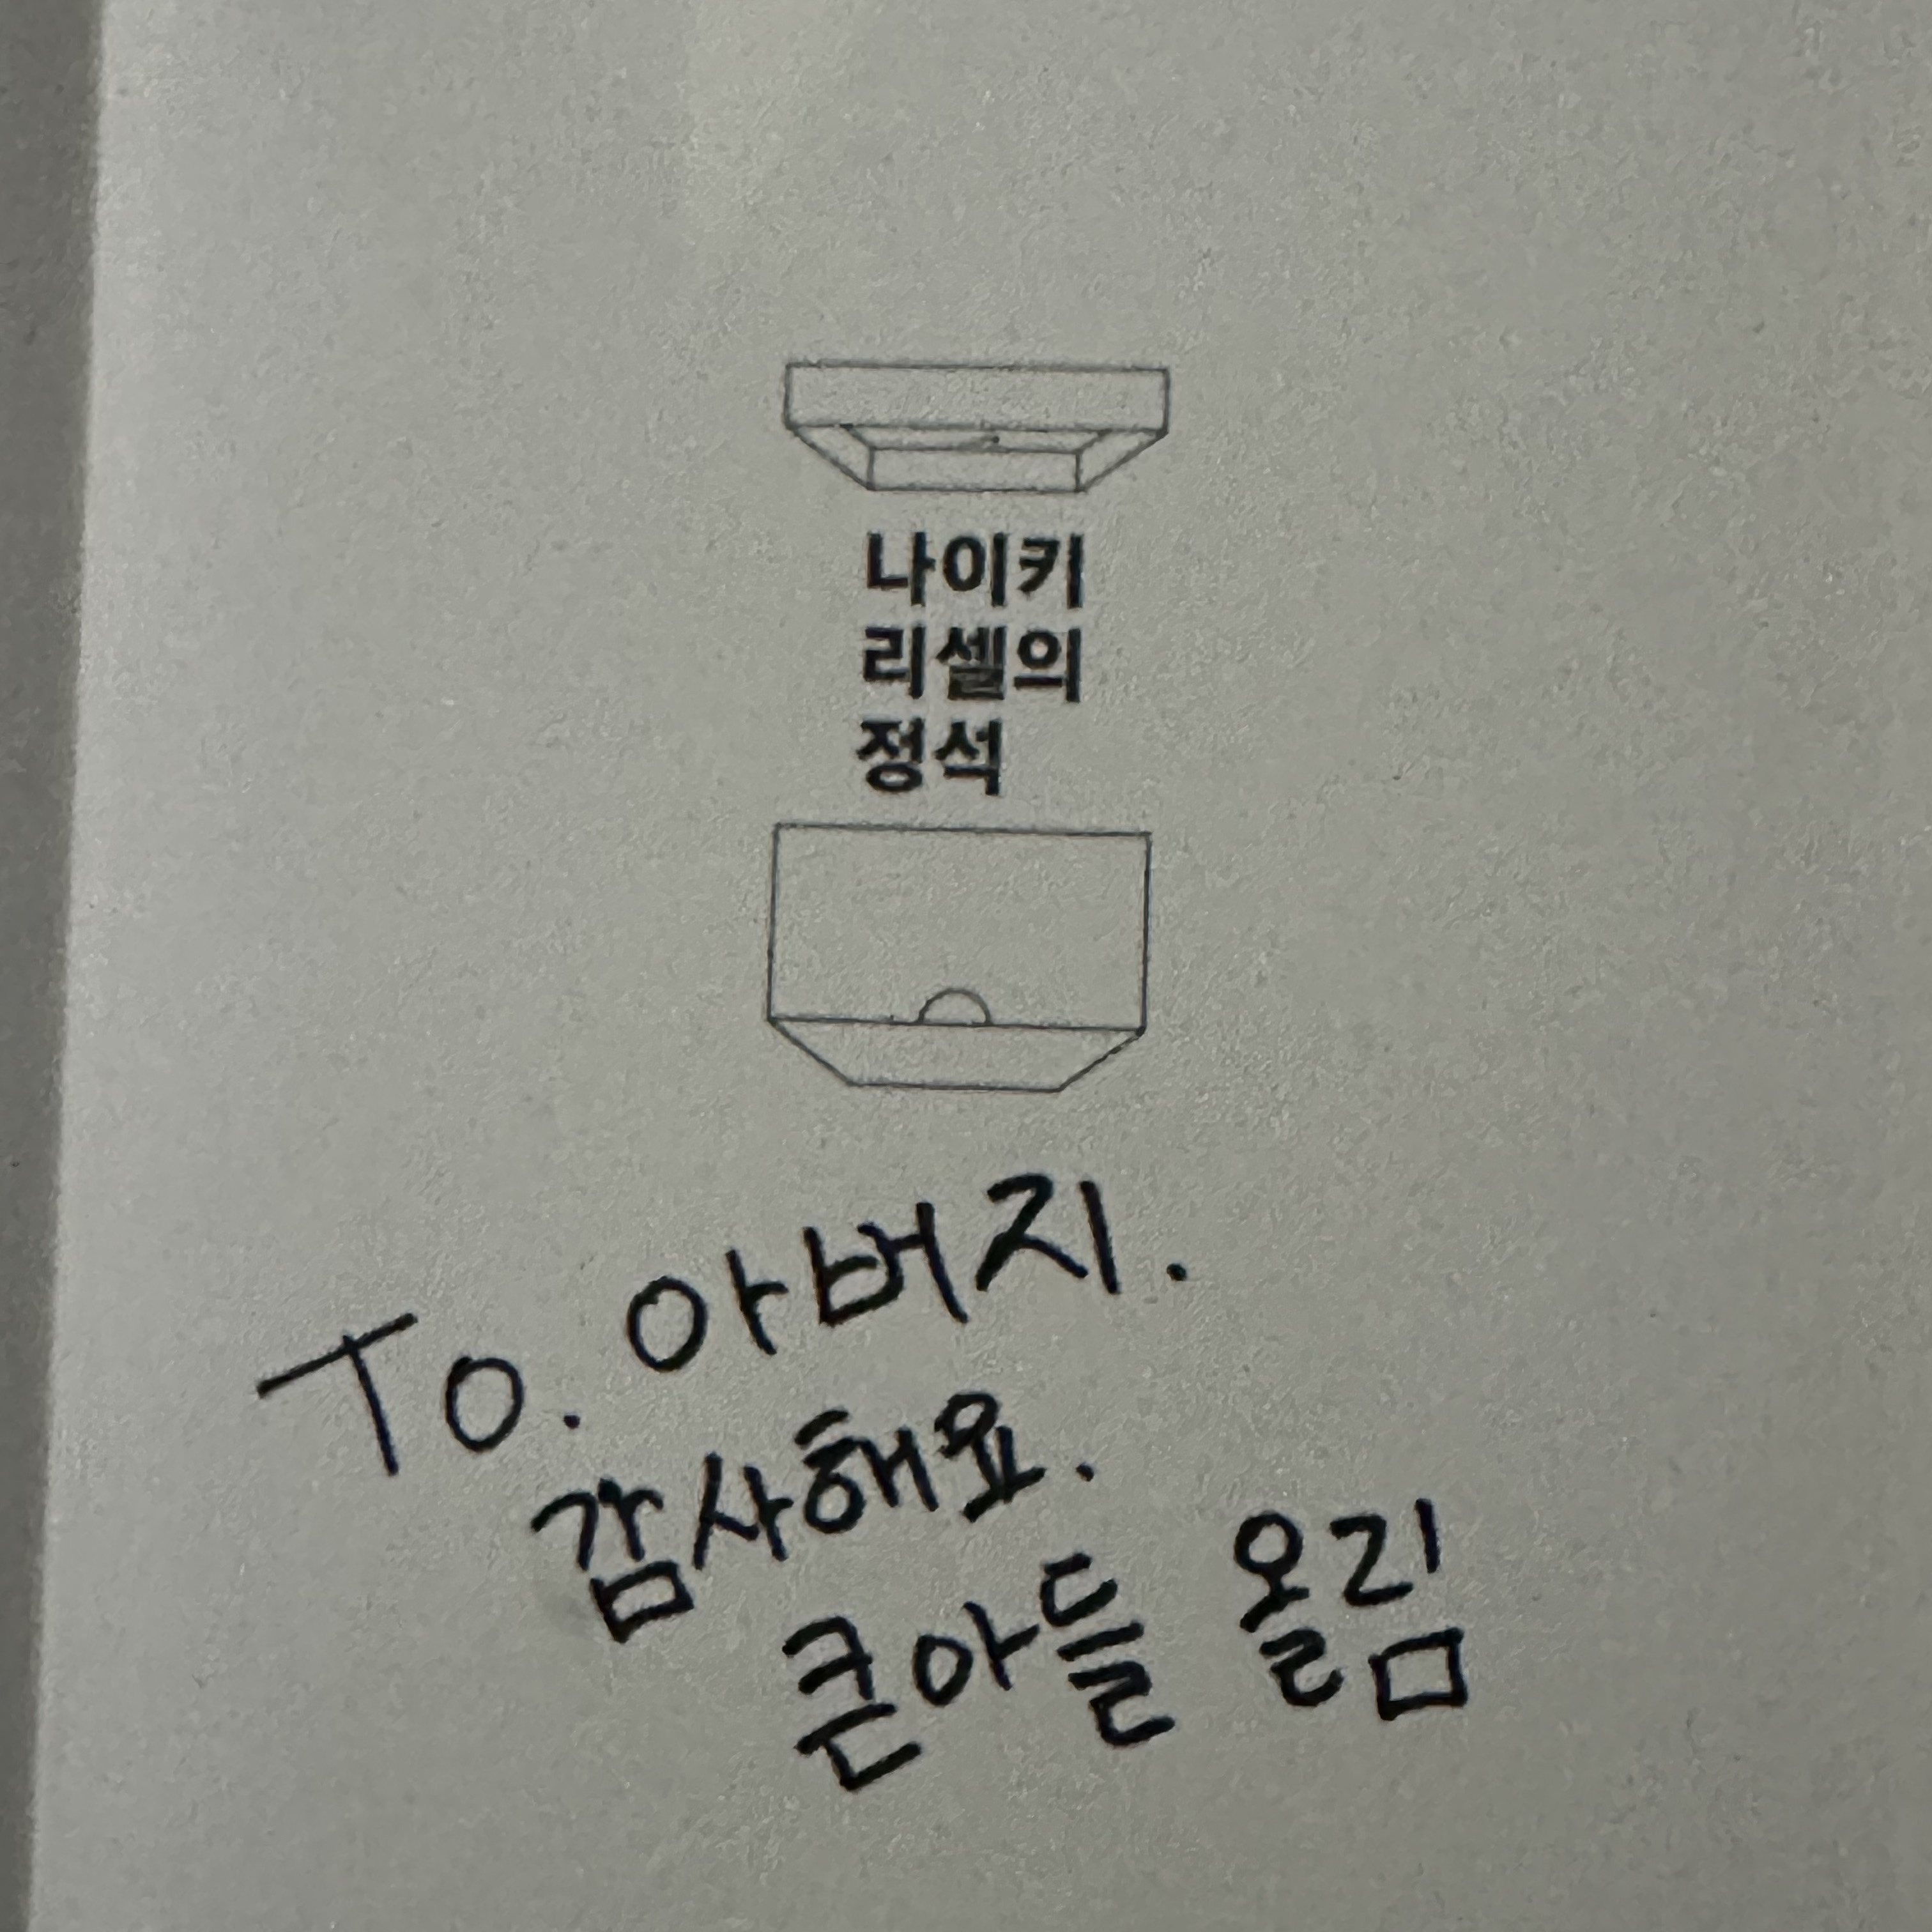 나이키
리셀의
정석
To. 아버지.
감사해요.
큰아들 올림